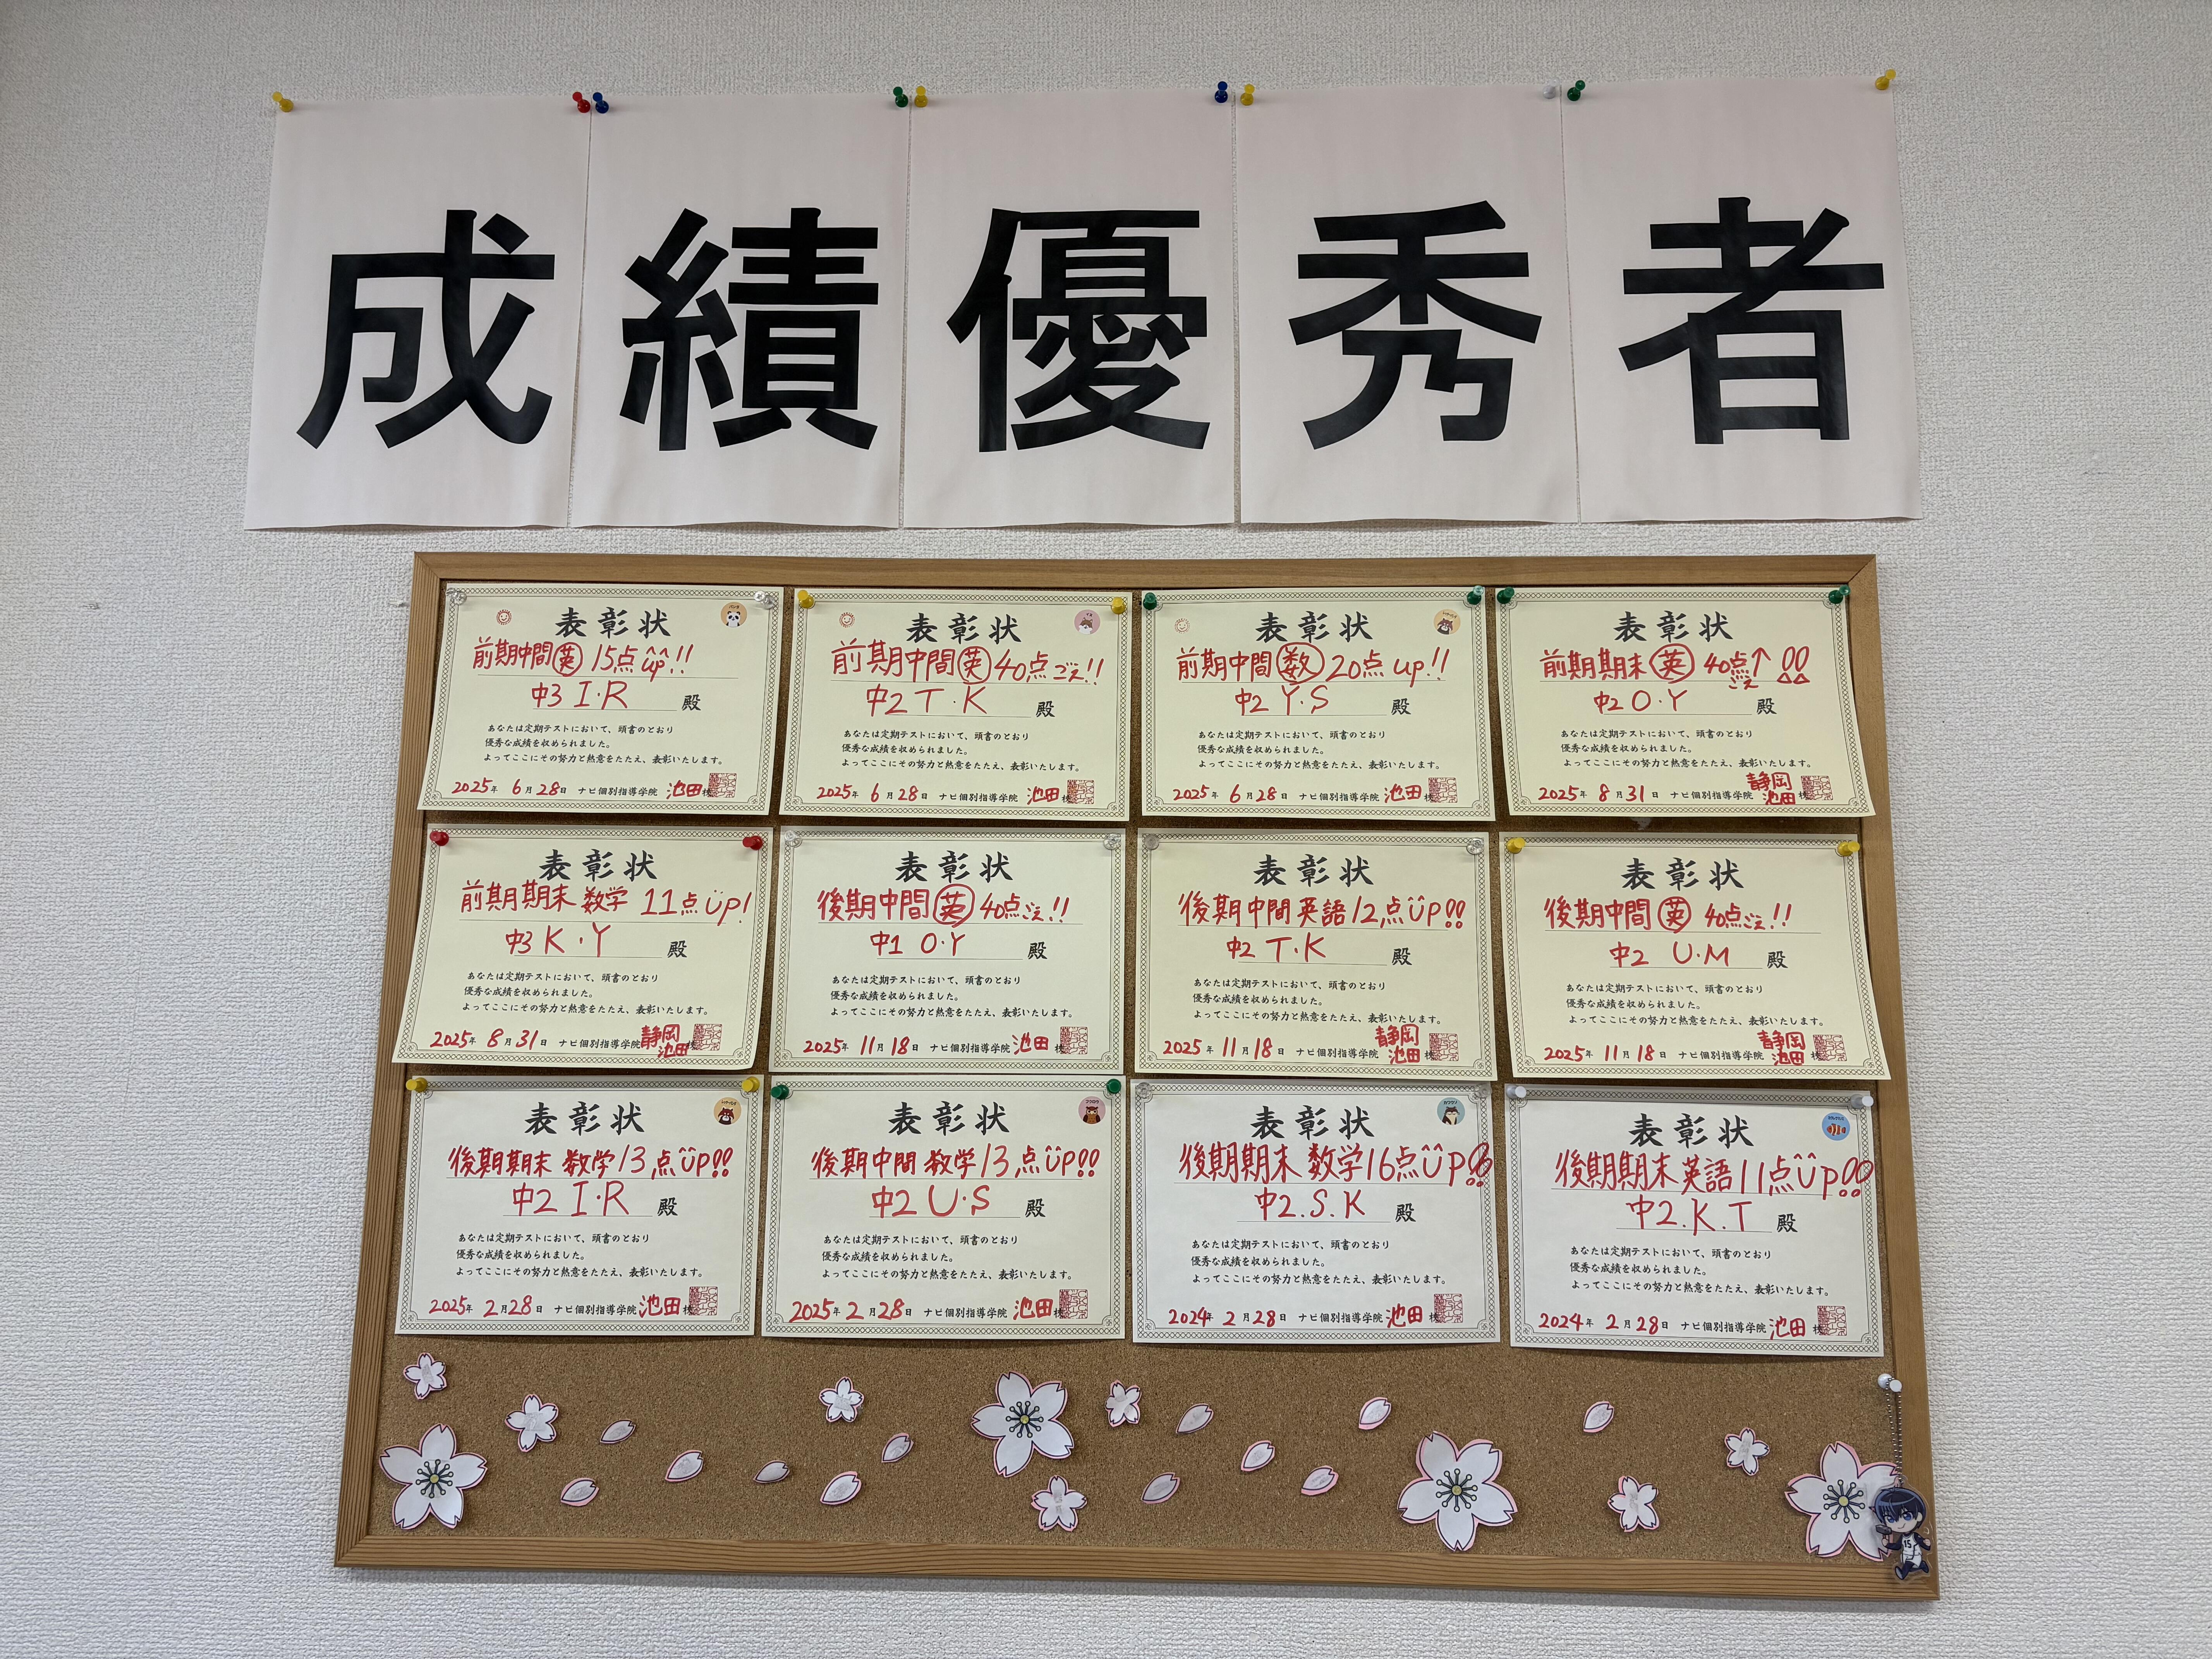 成績優秀者
表彰状
前期中間 英 15点up!!
中3 I・R 殿
あなたは定期テストにおいて、頭書のとおり
優秀な成績を収められました。
よってここにその努力と熱意をたたえ、表彰いたします。
2025年 6月28日 ナビ個別指導学院 池田校
表彰状
前期中間 英 40点ごえ!!
中2 T・K 殿
あなたは定期テストにおいて、頭書のとおり
優秀な成績を収められました。
よってここにその努力と熱意をたたえ、表彰いたします。
2025年 6月28日 ナビ個別指導学院 池田校
表彰状
前期中間 数 20点up!!
中2 Y・S 殿
あなたは定期テストにおいて、頭書のとおり
優秀な成績を収められました。
よってここにその努力と熱意をたたえ、表彰いたします。
2025年 6月28日 ナビ個別指導学院 池田校
表彰状
前期期末 英 40点ごえ↑!!
中2 O・Y 殿
あなたは定期テストにおいて、頭書のとおり
優秀な成績を収められました。
よってここにその努力と熱意をたたえ、表彰いたします。
2025年 8月31日 ナビ個別指導学院 静岡池田
表彰状
前期期末 数学 11点UP!
中3 K・Y 殿
あなたは定期テストにおいて、頭書のとおり
優秀な成績を収められました。
よってここにその努力と熱意をたたえ、表彰いたします。
2025年 8月31日 ナビ個別指導学院 静岡池田
表彰状
後期中間 英 40点ごえ!!
中1 O・Y 殿
あなたは定期テストにおいて、頭書のとおり
優秀な成績を収められました。
よってここにその努力と熱意をたたえ、表彰いたします。
2025年 11月18日 ナビ個別指導学院 池田 校
表彰状
後期中間 英語12点UP!!
中2 T・K 殿
あなたは定期テストにおいて、頭書のとおり
優秀な成績を収められました。
よってここにその努力と熱意をたたえ、表彰いたします。
2025年 11月18日 ナビ個別指導学院 静岡池田校
表彰状
後期中間 英 40点ごえ!!
中2 U・M 殿
あなたは定期テストにおいて、頭書のとおり
優秀な成績を収められました。
よってここにその努力と熱意をたたえ、表彰いたします。
2025年 11月18日 ナビ個別指導学院 静岡池田
表彰状
後期期末 数学13点UP!!
中2 I・R 殿
あなたは定期テストにおいて、頭書のとおり
優秀な成績を収められました。
よってここにその努力と熱意をたたえ、表彰いたします。
2025年 2月28日 ナビ個別指導学院 池田校
表彰状
後期中間 数学13点UP!!
中2 U・S 殿
あなたは定期テストにおいて、頭書のとおり
優秀な成績を収められました。
よってここにその努力と熱意をたたえ、表彰いたします。
2025年 2月28日 ナビ個別指導学院 池田校
表彰状
後期期末 数学16点UP!!
中2.S.K 殿
あなたは定期テストにおいて、頭書のとおり
優秀な成績を収められました。
よってここにその努力と熱意をたたえ、表彰いたします。
2024年 2月28日 ナビ個別指導学院 池田 校
表彰状
後期期末 英語11点UP!!
中2.K.T 殿
あなたは定期テストにおいて、頭書のとおり
優秀な成績を収められました。
よってここにその努力と熱意をたたえ、表彰いたします。
2024年 2月28日 ナビ個別指導学院 池田校
15